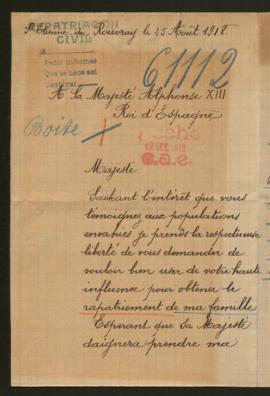 REPATRIACIÓN
CIVIL
St Etienne du Rouvray le 25 Août 1918.
Pedir informes
Que se hace así
61112
A Sa Majesté Alphonse XIII
Roi d'Espagne
Boite
Majesté
Sachant l'intérêt que vous
témoignez aux populations
envahies je prends la respectueuse
liberté de vous demander de
vouloir bien user de votre haute
influence pour obtenir le
rapatriement de ma famille
Esperant que Sa Majesté
daignera prendre ma